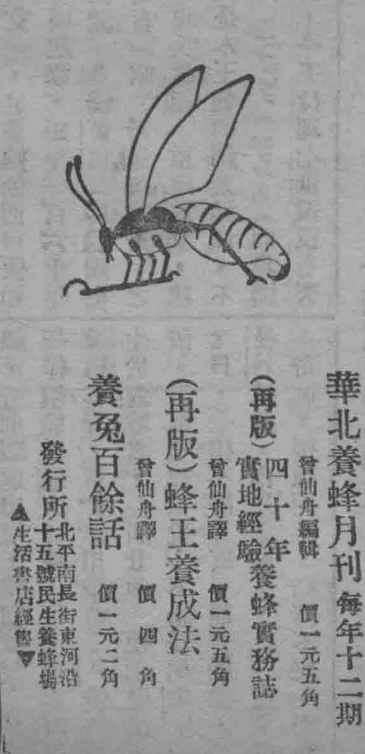 華北養蜂月刊 每年十二期
曾仙舟編輯 價一元五角
(再版) 四十年實地經驗養蜂實務誌
曾仙舟譯 價一元五角
(再版)蜂王養成法
曾仙舟譯 價四角
養兔百餘話 價一元二角
發行所 北平南長街東河沿十五號民生養蜂場
▲生活書店經售▼